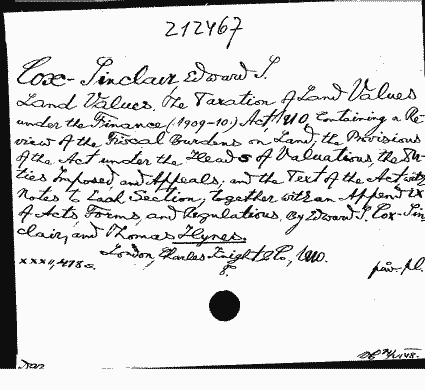 212467
Cox-Sinclair, Edward S.
Land Values, The Taxation of Land Values
under the Finance (1909-10) Act 1910, Containing a Re-
view of the Fiscal Burdens on Land, the Provisions
of the Act under the Heads of Valuations, the Du-
ties Imposed, and Appeals, and the Text of the Act with
Notes to Each Section; together with an Appendix
of Acts, Forms, and Regulations. By Edward S. Cox-Sin-
clair, and Thomas Hynes.
London, Charles Knight & Co., 1910.
xxxii, 478 s. 8. pär. pl.